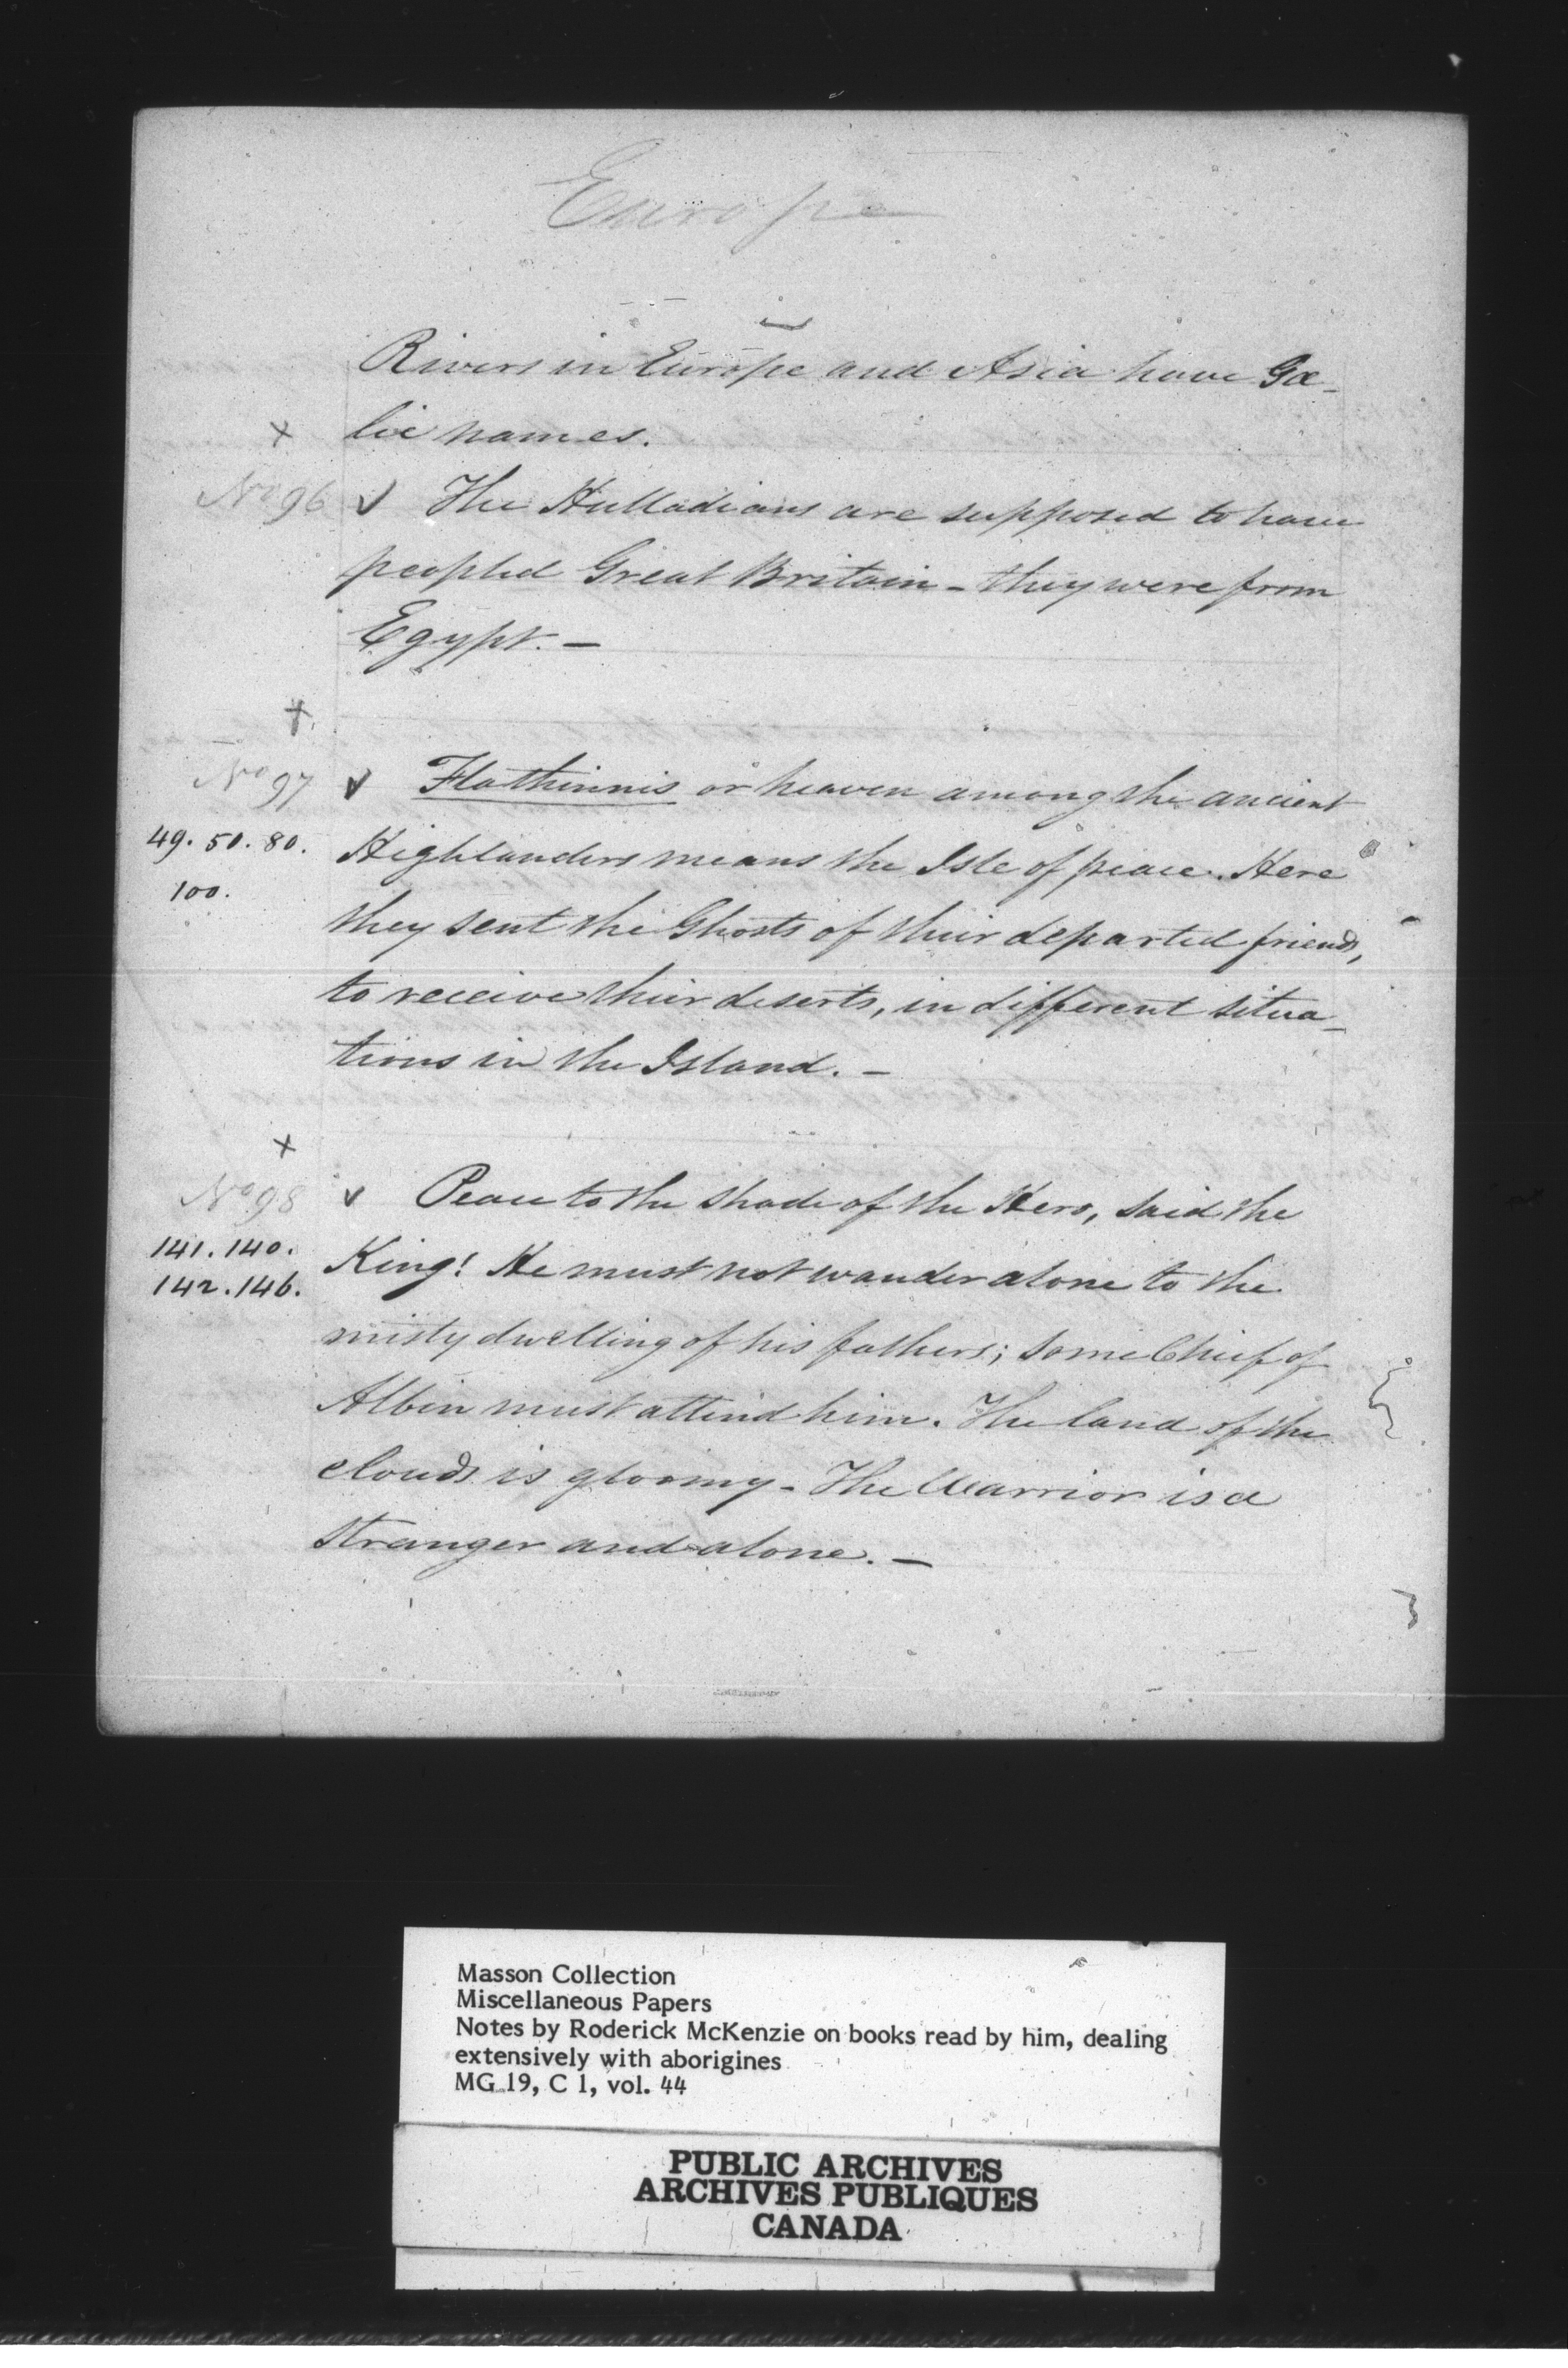 Europe
Rivers in Europe and Asia have Gæ-
× lic names.
No 96 ✓ The Hulladians are supposed to have
peopled Great Britain - they were from
Egypt. —
×
No 97 ✓ Flathinnis or heaven among the ancient
49. 50. 80. Highlanders means the Isle of peace. Here
100.
they sent the Ghosts of their departed friends,
to receive their deserts, in different situa-
tions in the Island. —
×
No 98 ✓ Peace to the shade of the Hero, said the
141. 140. King! He must not wander alone to the
142. 146.
misty dwelling of his fathers; some Chief of
Albin must attend him. The land of the
clouds is gloomy - The Warrior is a
stranger and alone. —
Masson Collection
Miscellaneous Papers
Notes by Roderick McKenzie on books read by him, dealing
extensively with aborigines
MG 19, C 1, vol. 44
PUBLIC ARCHIVES
ARCHIVES PUBLIQUES
CANADA